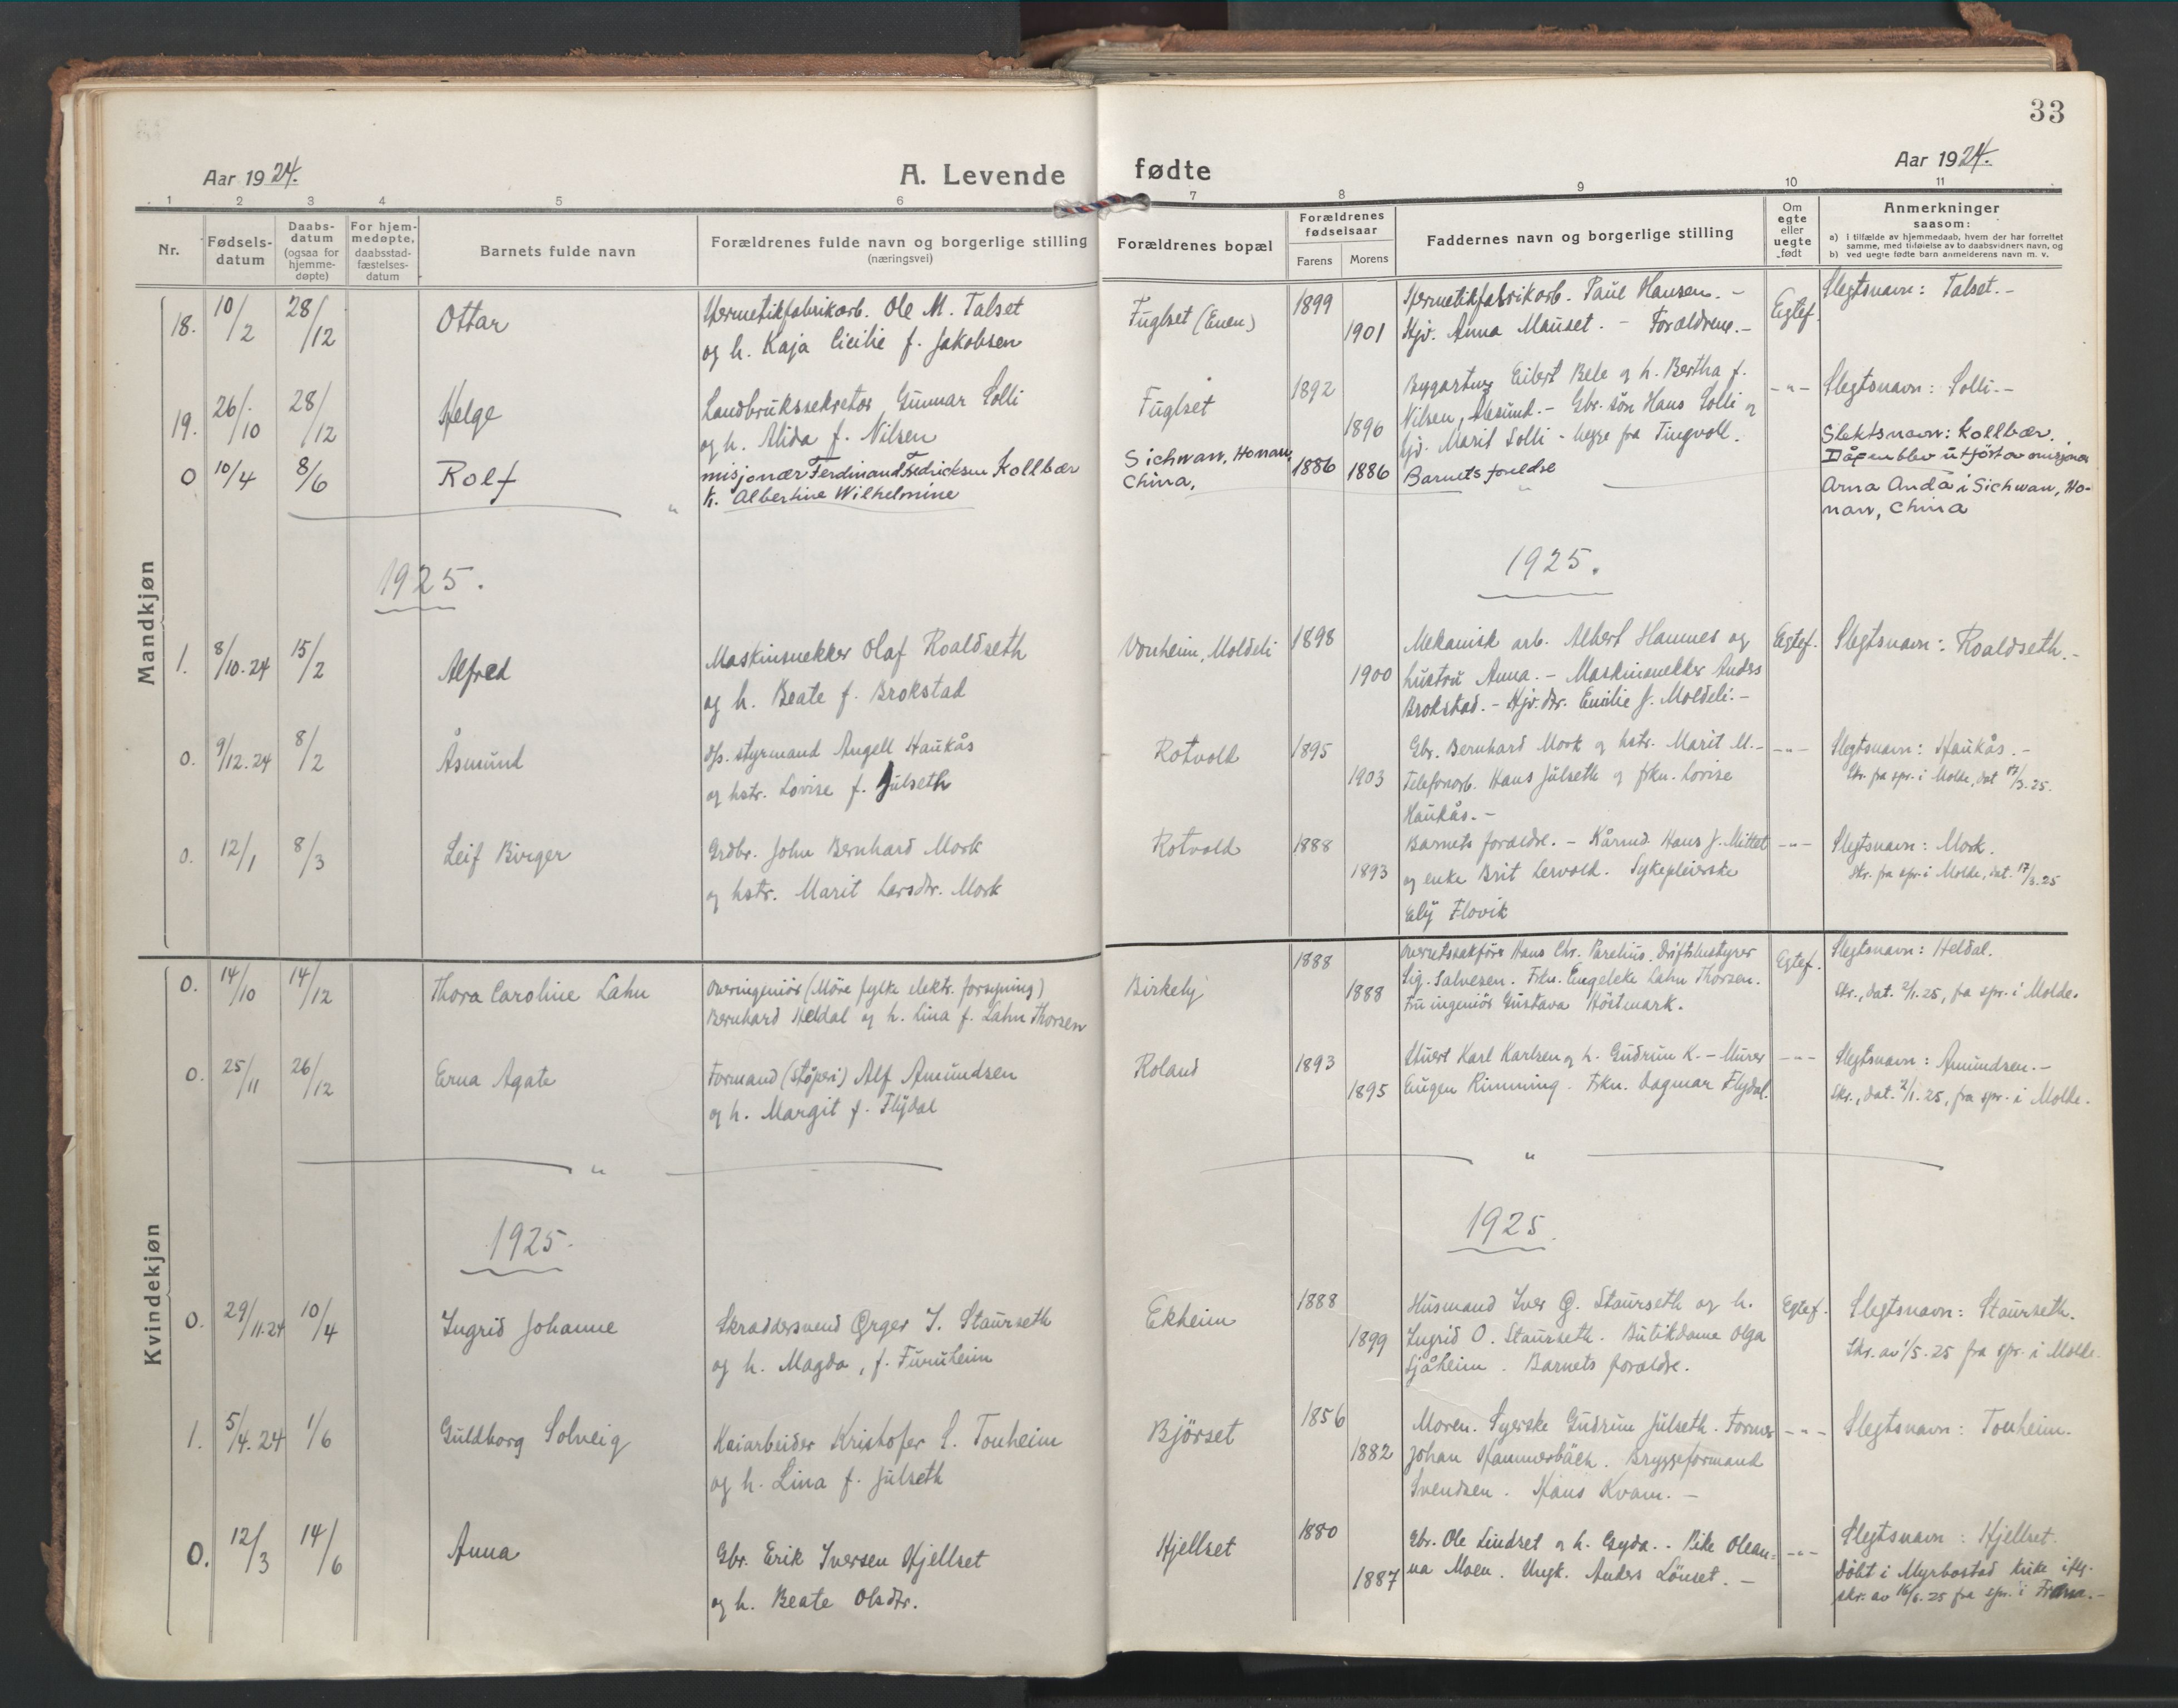 33
Aar 1924.
A. Levende fødte
Aar 1924.
1 2 3 4 5 6 7 8 9 10 11
Nr.
Fødsels-
datum
Daabs-
datum
(ogsaa for
hjemme-
døpte)
For hjem-
medøpte,
daabsstad-
fæstelses-
datum
Barnets fulde navn
Forældrenes fulde navn og borgerlige stilling
(næringsvei)
Forældrenes bopæl
Forældrenes
fødselsaar
Farens
Morens
Faddernes navn og borgerlige stilling
Om
egte
eller
uegte
født
Anmerkninger
saasom:
a) I tilfælde av hjemmedaab, hvem der har forrettet
samme, med tilføielse av to daabsvidners navn, og
b) ved uegte fødte barn anmelderens navn m. v.
Mandkjøn
18. 10/2 28/12 Ottar
Hermetikfabrikarb. Ole M. Talset
og h. Kaja Cicilie f. Jakobsen
Fuglset (Enen)
1899
1901
Hermetikfabrikarb. Paul Hansen. -
Hjv. Anna Mauset. - Forældrene. -
Egtef.
Slegtsnavn: Talset. -
19. 26/10 28/12 Helge
Landbrukssekretær Gunnar Solli
og h. Alida f. Nilsen
Fuglset
1892
1896
Eilert Bele og h. Bertha f.
Nilsen, Ålesund. - Gbr. søn Hans Solli og
hjv. Marit Solli - begge fra Tingvoll.
- " -
Slegtsnavn: Solli. -
0 10/4 8/6 Rolf
misjonær Ferdinand Fredriksen Kollbær
h. Albertine Wilhelmine
Sichwan, Honan,
China,
1886 1886
Barnets foreldre
Slektsnavn: Kollbær.
Dåpen blev utført av misjonær
Arna Anda i Sichwan, Ho-
nan, China
1925.
1925.
1. 8/10.24 15/2 Alfred
Maskinsnekker Olaf Roaldseth
og h. Beate f. Brokstad
Vonheim, Moldeli
1898
1900
Mekanisk arb. Albert Hamnes og
hustru Anna. - Maskinsnekker Anders
Brokstad. - Hjv. dtr. Emilie J. Moldeli. -
Egtef.
Slegtsnavn: Roaldseth. -
0. 9/12.24 8/2 Åsmund
d/s. styrmand Angell Haukås
og hstr. Lovise f. Julseth
Rotvold
1895
1903
Gbr. Bernhard Mork og hstr. Marit M. -
Telefonarb. Hans Julseth og frkn. Lovise
Haukås. -
- " -
Slegtsnavn: Haukås. -
Skr. fra spr. i Molde, dat. 17/3.25.
0. 12/1 8/3 Leif Birger
Grdbr. John Bernhard Mork
og hstr. Marit Larsdtr. Mork
Rotvold
1888
1893
Barnets forældre. - Kårmd. Hans J. Mittet
og enke Brit Lervold. Sykepleierske
Ely Flovik
- " -
Slegtsnavn: Mork.
Skr. fra spr. i Molde, dat. 17/3.25
Kvindekjøn
0. 14/10 14/12 Thora Caroline Lahn
Overingeniør (Møre fylke elektr. forsyning)
Bernhard Heldal og h. Lina f. Lahn Thorsen
Birkely
1888
1888
Overretssakfører Hans Chr. Parelius. Driftsbestyrer
Sig. Salvesen. Frkn. Engeleke Lahn Thorsen.
Fru ingeniør Gustava Höstmark.
Egtef.
Slegtsnavn: Heldal.
Skr., dat. 2/1.25, fra spr. i Molde.
0. 25/11 26/12 Erna Agate
Formand (støperi) Alf Amundsen
og h. Margit f. Flydal
Roland
1893
1895
Stuert Karl Karlsen og h. Gudrun K. - Murer
Eugen Rimming. Frkn. Dagmar Flydal.
- " -
Slegtsnavn: Amundsen. -
Skr., dat. 2/1.25, fra spr. i Molde.
1925.
1925.
0. 29/11.24 10/4 Ingrid Johanne
Skræddersvend Ørger I. Staurseth
og h. Magda, f. Furuheim
Ekheim
1888
1899
Husmand Iver Ø. Staurseth og h.
Ingrid O. Staurseth. Butikdame Olga
Sjåheim. Barnets forældre.
Egtef.
Slegtsnavn: Staurseth.
Skr. av 1/5.25 fra spr. i Molde.
1. 5/4.24 1/6 Guldborg Solveig
Kaiarbeider Kristofer S. Tonheim
og h. Lina f. Julseth
Bjørset
1856
1882
Moren. Syerske Gudrun Julseth. Former
Johan Hammerbäck. Bryggeformand
Svendsen. Hans Kvam. -
- " -
Slegtsnavn: Tonheim.
0. 12/3 14/6 Anna
Gbr. Erik Iversen Hjellset
og h. Beate Olsdtr.
Hjellset
1880
1887
Gbr. Ole Lindset og h. Gyda. - Pike Olean-
na Moen. Ungk. Anders Lönset. -
- " -
Slegtsnavn: Hjellset.
Döbt i Myrbostad kirke iflg.
skr. av 16/6.25 fra spr. i Fræna. -